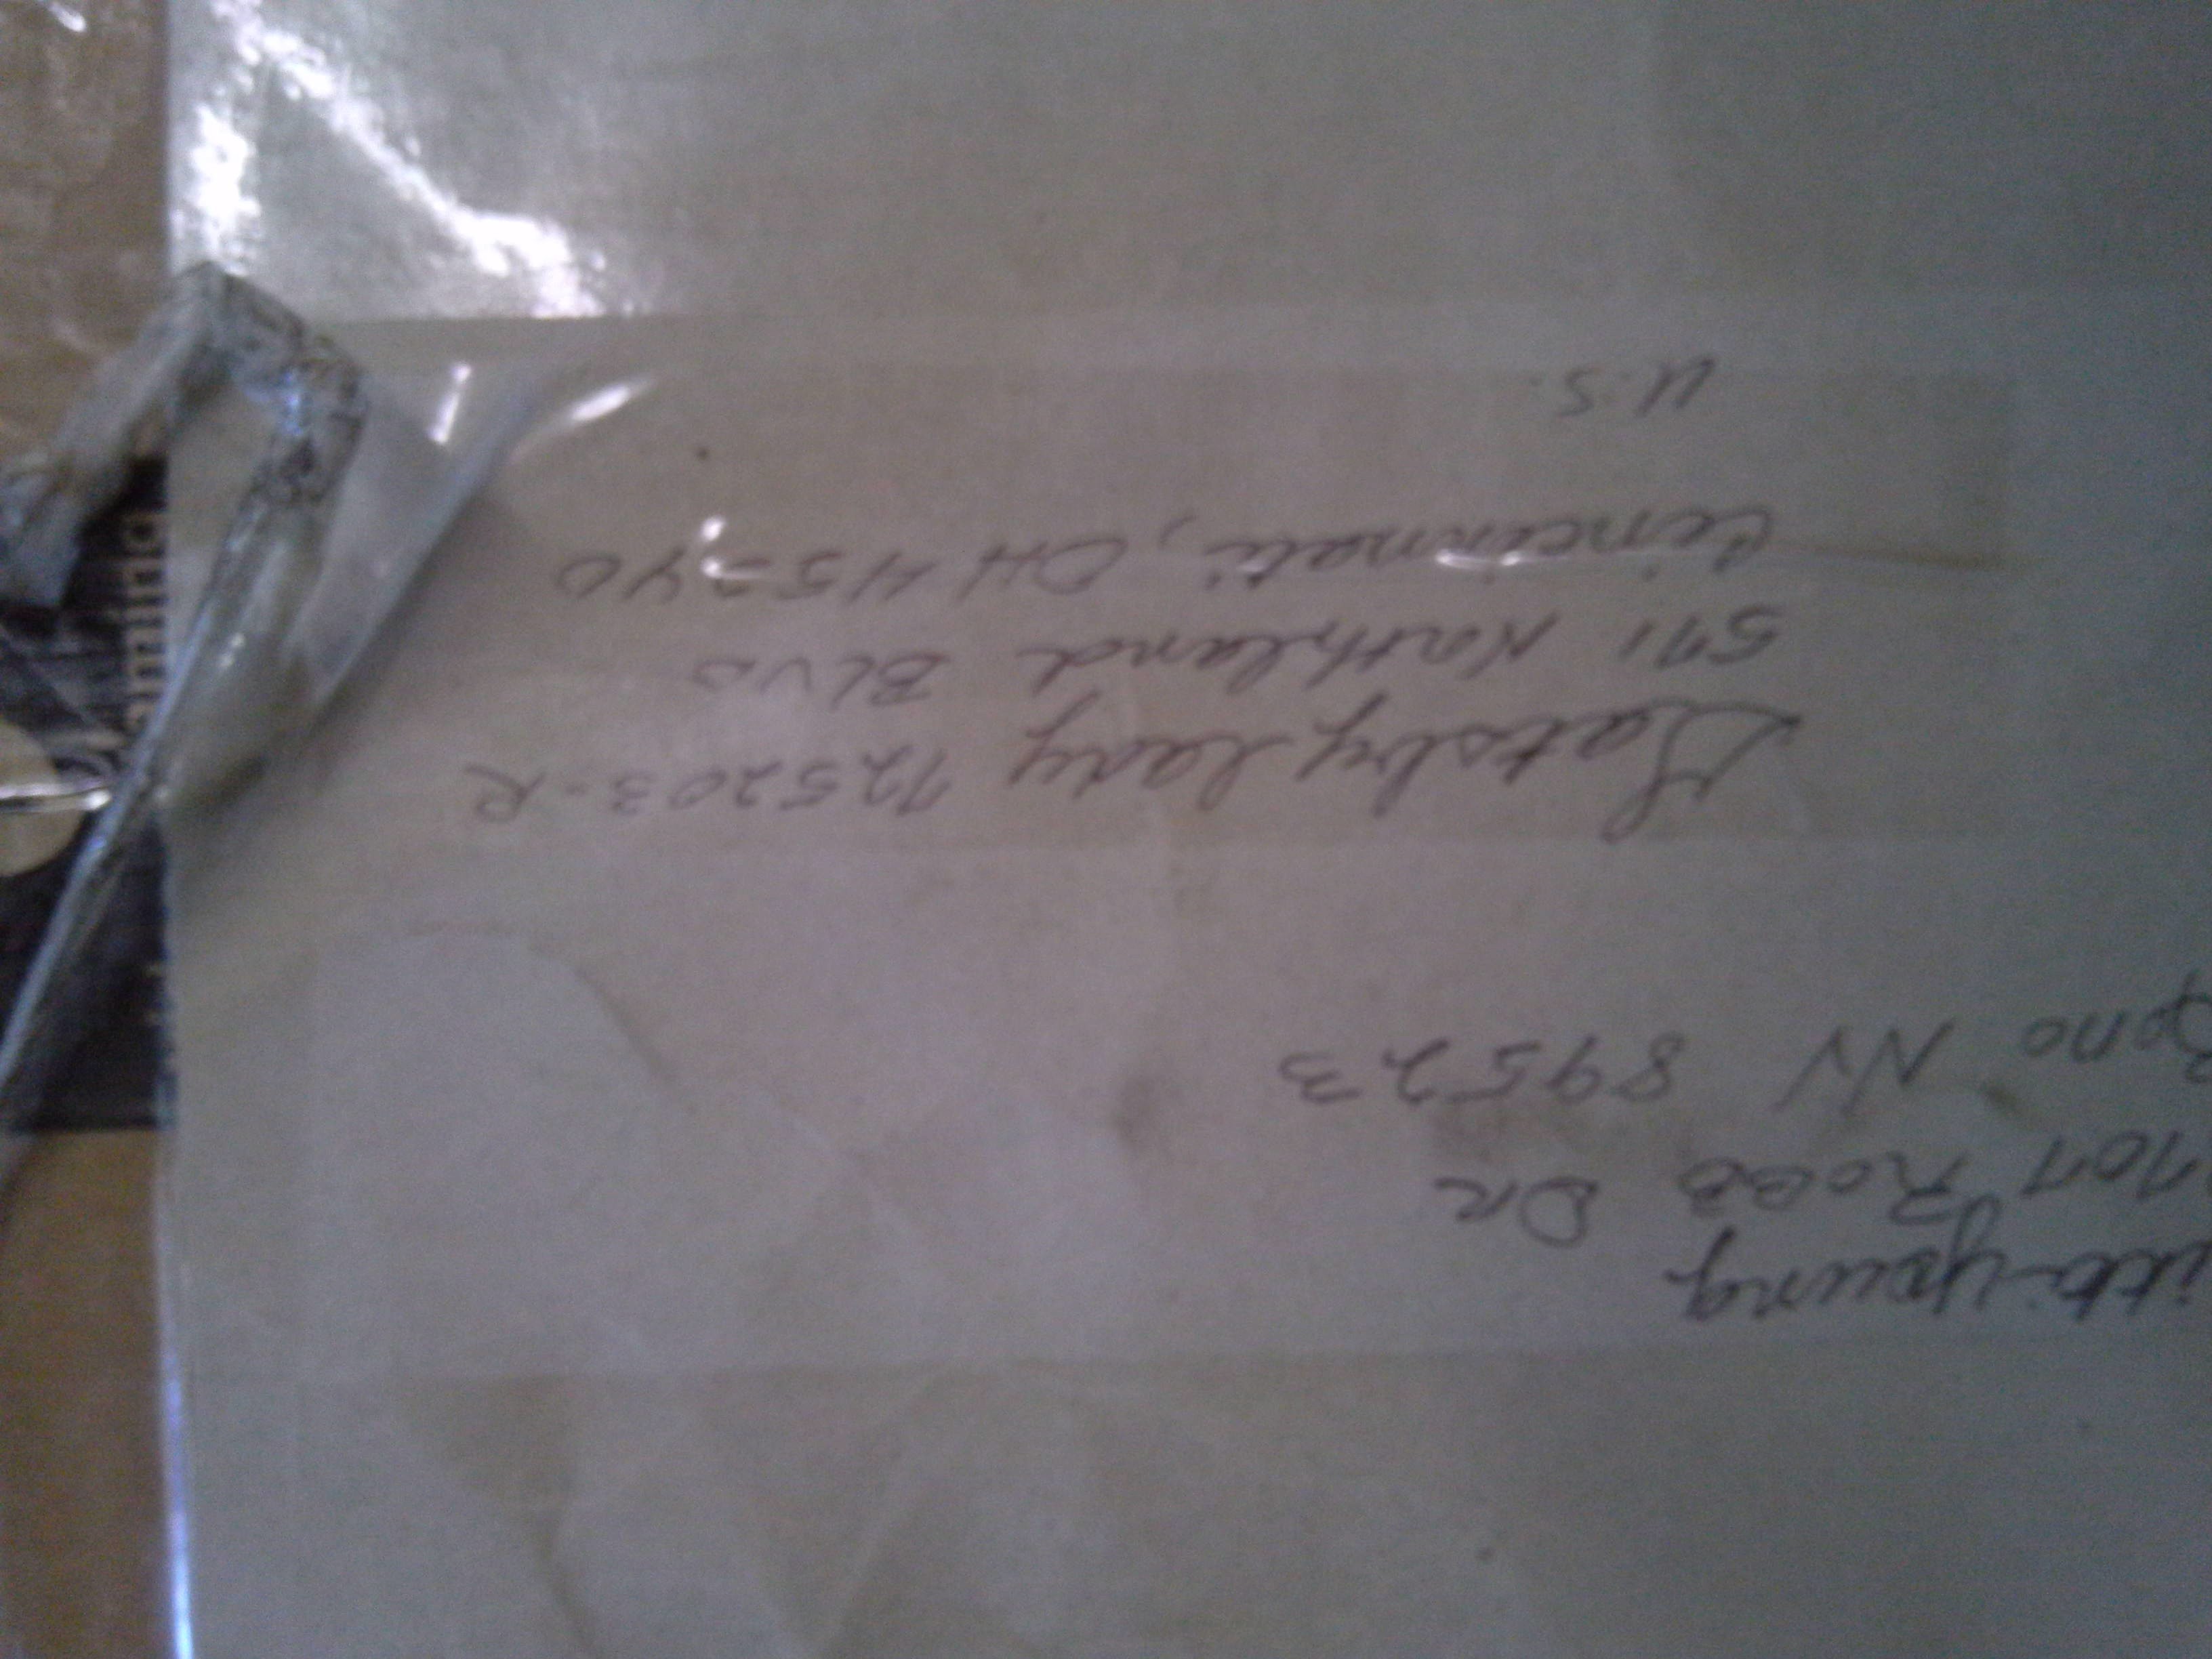 ito-young
1707 Robb DR
Reno NV 89523
Gatsby lady 725203-R
571 Northland BLVD
Cincinnati, OH 45240
U.S.
aming